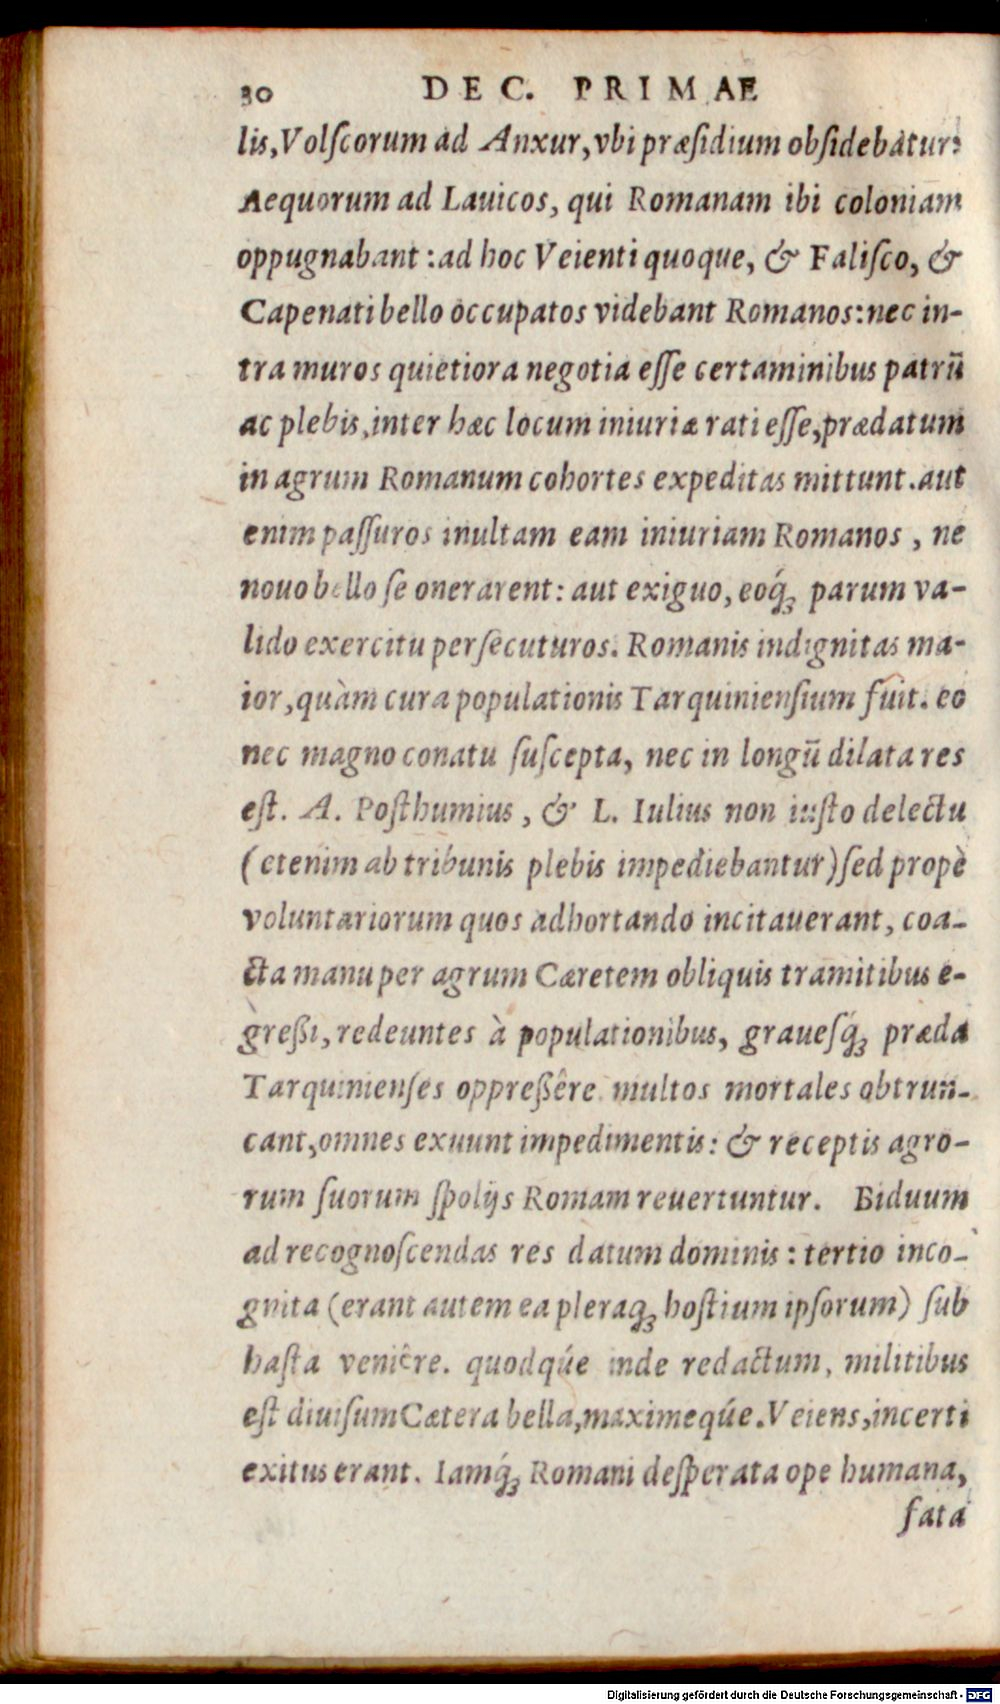 30 DEC. PRIMAE
lis, Volſcorum ad Anxur, vbi præſidium obſidebatur:
Aequorum ad Lauicos, qui Romanam ibi coloniam
oppugnabant: ad hoc Veienti quoque, & Faliſco, &
Capenati bello occupatos videbant Romanos: nec in-
tra muros quietiora negotia eſſe certaminibus patrū
ac plebis, inter hæc locum iniuriæ rati eſſe, prædatum
in agrum Romanum cohortes expeditas mittunt. aut
enim paſſuros inultam eam iniuriam Romanos, ne
nouo bello ſe onerarent: aut exiguo, eoq́ꝫ parum va-
lido exercitu perſecuturos. Romanis indignitas ma-
ior, quàm cura populationis Tarquinienſium fuit. eo
nec magno conatu ſuſcepta, nec in longū dilata res
eſt. A. Poſthumius, & L. Iulius non iuſto delectu
(etenim ab tribunis plebis impediebantur) ſed propè
voluntariorum quos adhortando incitauerant, coa-
cta manu per agrum Cæretem obliquis tramitibus e-
greßi, redeuntes à populationibus, graueſq́ꝫ præda
Tarquinienſes oppreßêre multos mortales obtrun-
cant, omnes exuunt impedimentis: & receptis agro-
rum ſuorum ſpolijs Romam reuertuntur. Biduum
ad recognoſcendas res datum dominis: tertio inco-
gnita (erant autem ea pleraqꝫ hoſtium ipſorum) ſub
haſta veniêre. quodqúe inde redactum, militibus
eſt diuiſum Cætera bella, maximeqúe. Veiens, incerti
exitus erant. Iamq́ꝫ Romani deſperata ope humana,
fata
Digitalisierung gefördert durch die Deutsche Forschungsgemeinschaft - DFG